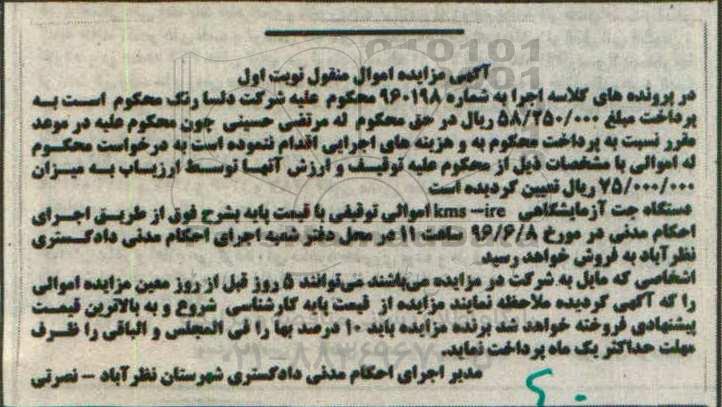 آگهی مزایده اموال منقول نوبت اول
در پرونده های کلاسه اجرا به شماره ۹۶۰۱۹۸ محکوم علیه شرکت دلسا رنگ محکوم است به
پرداخت مبلغ ۵۸/۳۵۰/۰۰۰ ریال در حق محکوم له مرتضی حسینی چون محکوم علیه در موعد
مقرر نسبت به پرداخت محکوم به و هزینه های اجرایی اقدام ننموده است به درخواست محکوم
له اموالی با مشخصات ذیل از محکوم علیه توقیف و ارزش آنها توسط ارزیاب به میزان
۷۵/۰۰۰/۰۰۰ ریال تعیین گردیده است
دستگاه جت آزمایشگاهی kms –ire اموالی توقیفی با قیمت پایه بشرح فوق از طریق اجرای
احکام مدنی در مورخ ۹۶/۶/۸ ساعت ۱۱ در محل دفتر شعبه اجرای احکام مدنی دادگستری
نظرآباد به فروش خواهد رسید
اشخاصی که مایل به شرکت در مزایده می‌باشند می‌توانند ۵ روز قبل از روز معین مزایده اموالی
را که آگهی گردیده ملاحظه نمایند مزایده از قیمت پایه کارشناسی شروع و به بالاترین قیمت
پیشنهادی فروخته خواهد شد برنده مزایده باید ۱۰ درصد بها را فی المجلس و الباقی را ظرف
مهلت حداکثر یک ماه پرداخت نماید.
مدیر اجرای احکام مدنی دادگستری شهرستان نظرآباد – نصرتی